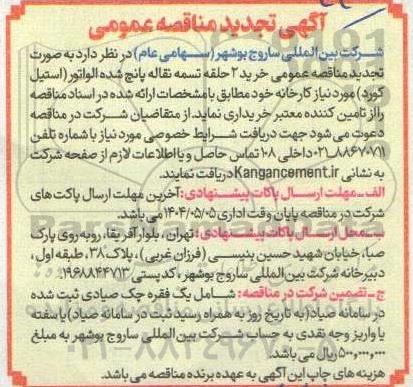 آگهی تجدید مناقصه عمومی
شرکت بین المللی ساروج بوشهر (سهامی عام) در نظر دارد به صورت
تجدید مناقصه عمومی خرید ۲ حلقه تسمه نقاله پانچ شده الواتور (استیل
کورد) مورد نیاز کارخانه خود مطابق با مشخصات ارائه شده در اسناد مناقصه
را از تامین کننده معتبر خریداری نماید. از متقاضیان شرکت در مناقصه
دعوت می شود جهت دریافت شرایط خصوصی مورد نیاز با شماره تلفن
۰۲۱-۸۸۶۷۰۷۱۱ داخلی ۱۰۸ تماس حاصل و یا اطلاعات لازم از صفحه شرکت
به نشانی Kangancement.ir دریافت نمایند.
الف-مهلت ارسال پاکات پیشنهادی: آخرین مهلت ارسال پاکت های
شرکت در مناقصه پایان وقت اداری ۱۴۰۴/۰۵/۰۵ می باشد.
ب-محل ارسال پاکات پیشنهادی: تهران، بلوار آفریقا، روبه روی پارک
صبا، خیابان شهید حسین پنیسی (فرزان غربی)، پلاک ۳۸، طبقه اول،
دبیرخانه شرکت بین المللی ساروج بوشهر، کدپستی ۱۹۶۸۸۴۴۷۱۳
ج-تضمین شرکت در مناقصه: شامل یک فقره چک صیادی ثبت شده
در سامانه صیاد (به تاریخ روز به همراه رسید ثبت در سامانه صیاد) یا سفته
یا واریز وجه نقدی به حساب شرکت بین المللی ساروج بوشهر به مبلغ
۵۰۰,۰۰۰,۰۰۰ ریال می باشد.
هزینه های چاپ این آگهی به عهده برنده مناقصه می باشد.